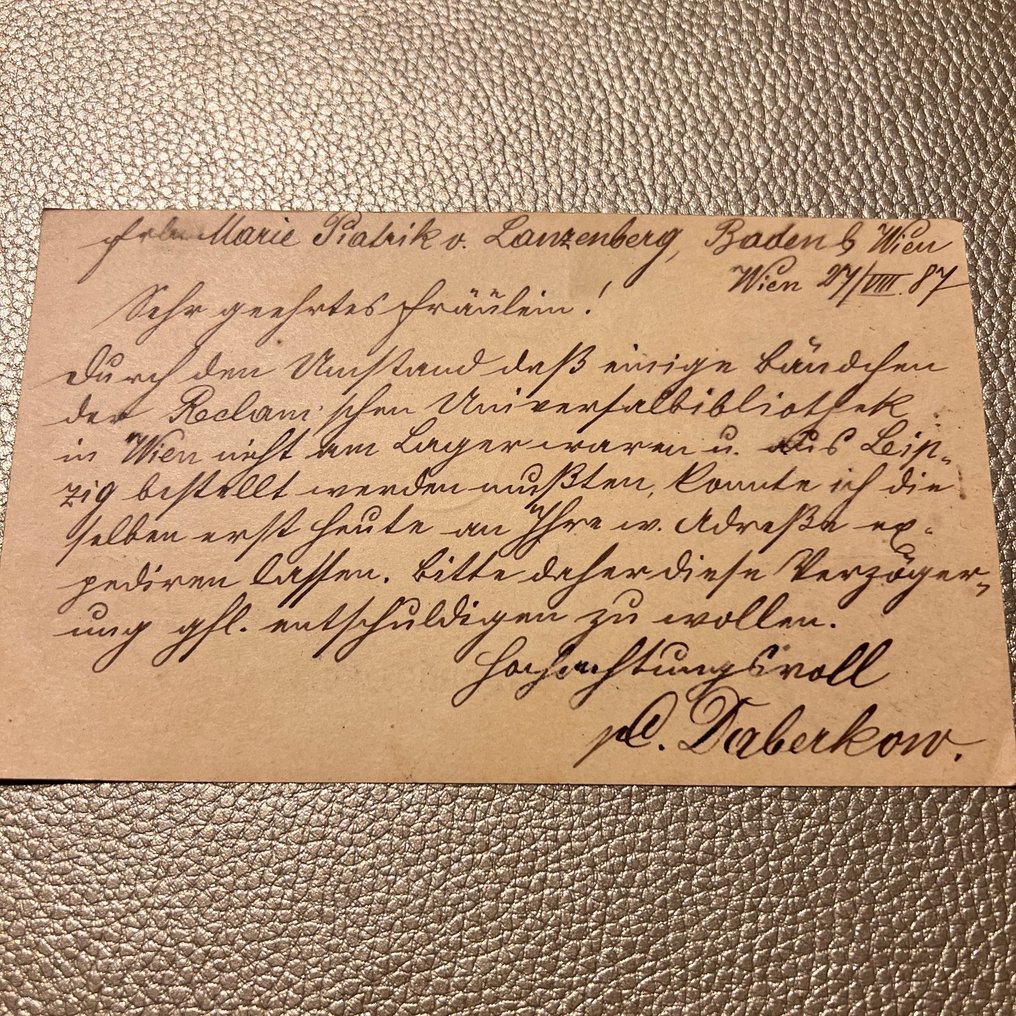 Frln Marie Piatrik v. Lanzenberg, Baden b Wien
Wien 27/VIII. 87
Sehr geehrtes Fräulein!
Durch den Umstand daß einige Bändchen
der Reclam'schen Universalbibliothek
in Wien nicht am Lager waren u. aus Leip-
zig bestellt werden mußten, konnte ich die
selben erst heute an Ihre w. Adreße ex-
pediren lassen. Bitte daher diese Verzöger-
ung gfl. entschuldigen zu wollen.
Hochachtungsvoll
C. Daberkow.